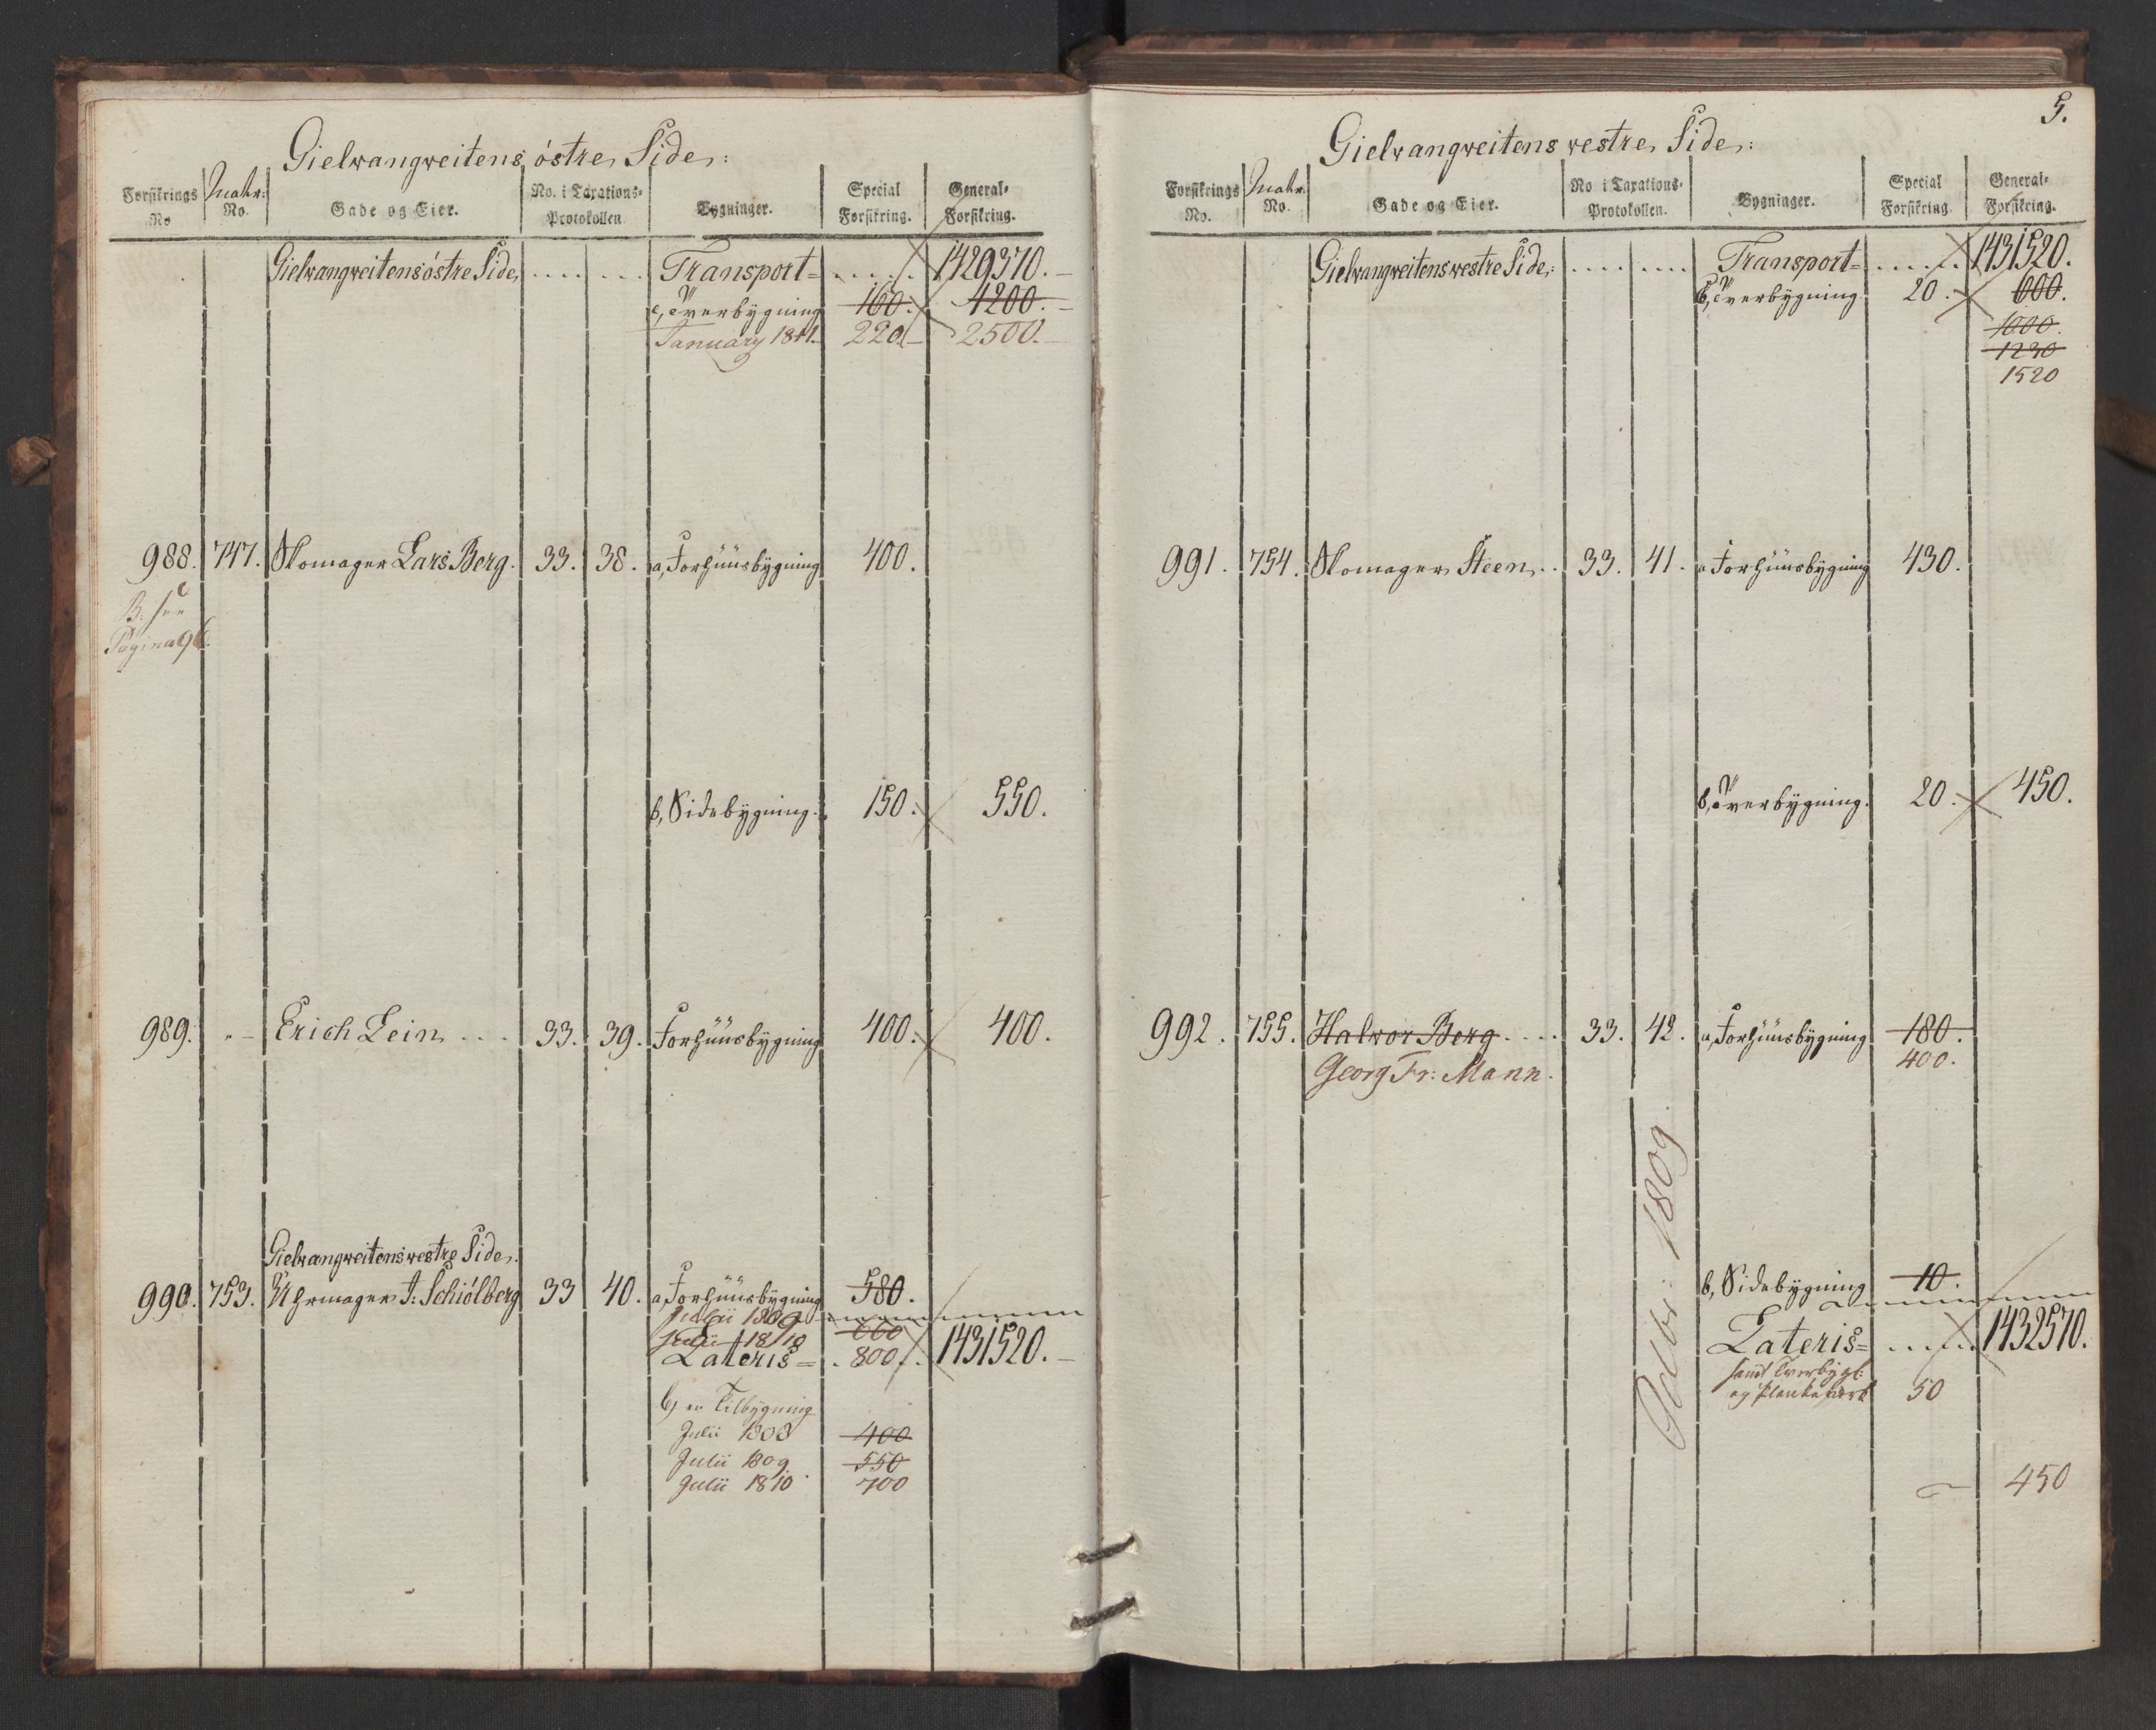 Gielvangveitens östre Side:
Forsikrings No. Matr: No. Gade og Eier. No. i Taxations-Protokollen. Bygninger. Special Forsikring. General-Forsikring.
Gielvangveitens östre Side, Transport= 1429370.
c, Tverbÿgning 160. 1200.
January 1811. 220. 2500.
988. 747. Skomager Lars Berg. 33. 38. a, Forhüüsbÿgning 400.
B: see
Pagina 96.
b, Sidebÿgning. 150. 550.
989. Erich Lein 33. 39. Forhüüsbÿgning 400. 400.
Gielvangveitens vestre Side.
990. 753. Uhrmager J: Schiölberg 33 40. a, Forhüüsbÿgning 580.
Julii 1809
Julii 1810 660
Lateris= 800. 1431520.
b) en Tilbÿgning
Julii 1808 400
Julii 1809. 550
Julii 1810 700
5.
Gielvangveitens vestre Side:
Forsikrings No. Matr. No. Gade og Eier. No i Taxations-Protokollen. Bygninger. Special Forsikring. General-Forsikring.
Gielvangveitens vestre Side: Transport= 1431520.
b, Tverbÿgning. 20. 600.
1000.
1230
1520
991. 754. Skomager Steen 33. 41. a Forhüüsbÿgning 430.
b, Tverbÿgning. 20. 450.
992. 755. Halvor Berg 33. 42. a, Forhüüsbÿgning 180.
Georg Fr: Mann. 400.
Octbr: 1809.
b, Sidebÿgning 10.
Lateris= 1432570.
samt Tverbygn:
og Plankeværk 50
450